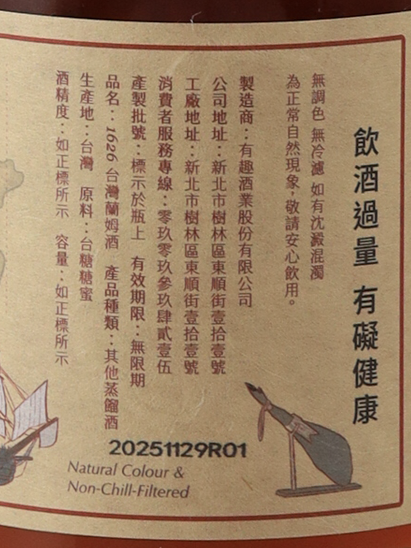 飲酒過量 有礙健康
無調色 無冷濾 如有沈澱混濁
為正常自然現象,敬請安心飲用。
製造商:有趣酒業股份有限公司
公司地址:新北市樹林區東順街壹拾壹號
工廠地址:新北市樹林區東順街壹拾壹號
消費者服務專線:零玖零玖參玖肆貳壹伍
產製批號:標示於瓶上 有效期限:無限期
品名:1626 台灣蘭姆酒 產品種類:其他蒸餾酒
生產地:台灣 原料:台糖糖蜜
酒精度:如正標所示 容量:如正標所示
20251129R01
Natural Colour &
Non-Chill-Filtered